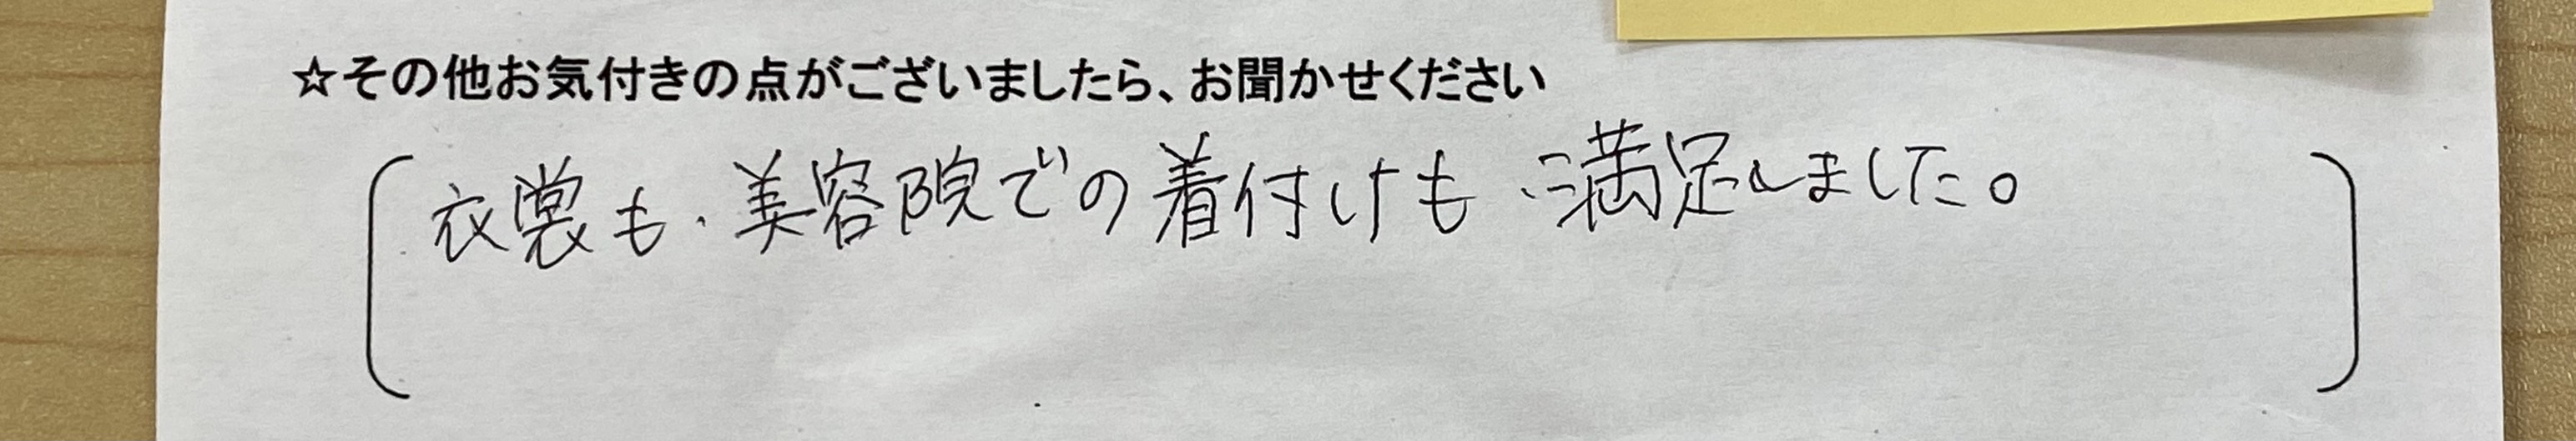 ☆その他お気付きの点がございましたら、お聞かせください
衣裳も、美容院での着付けも満足しました。